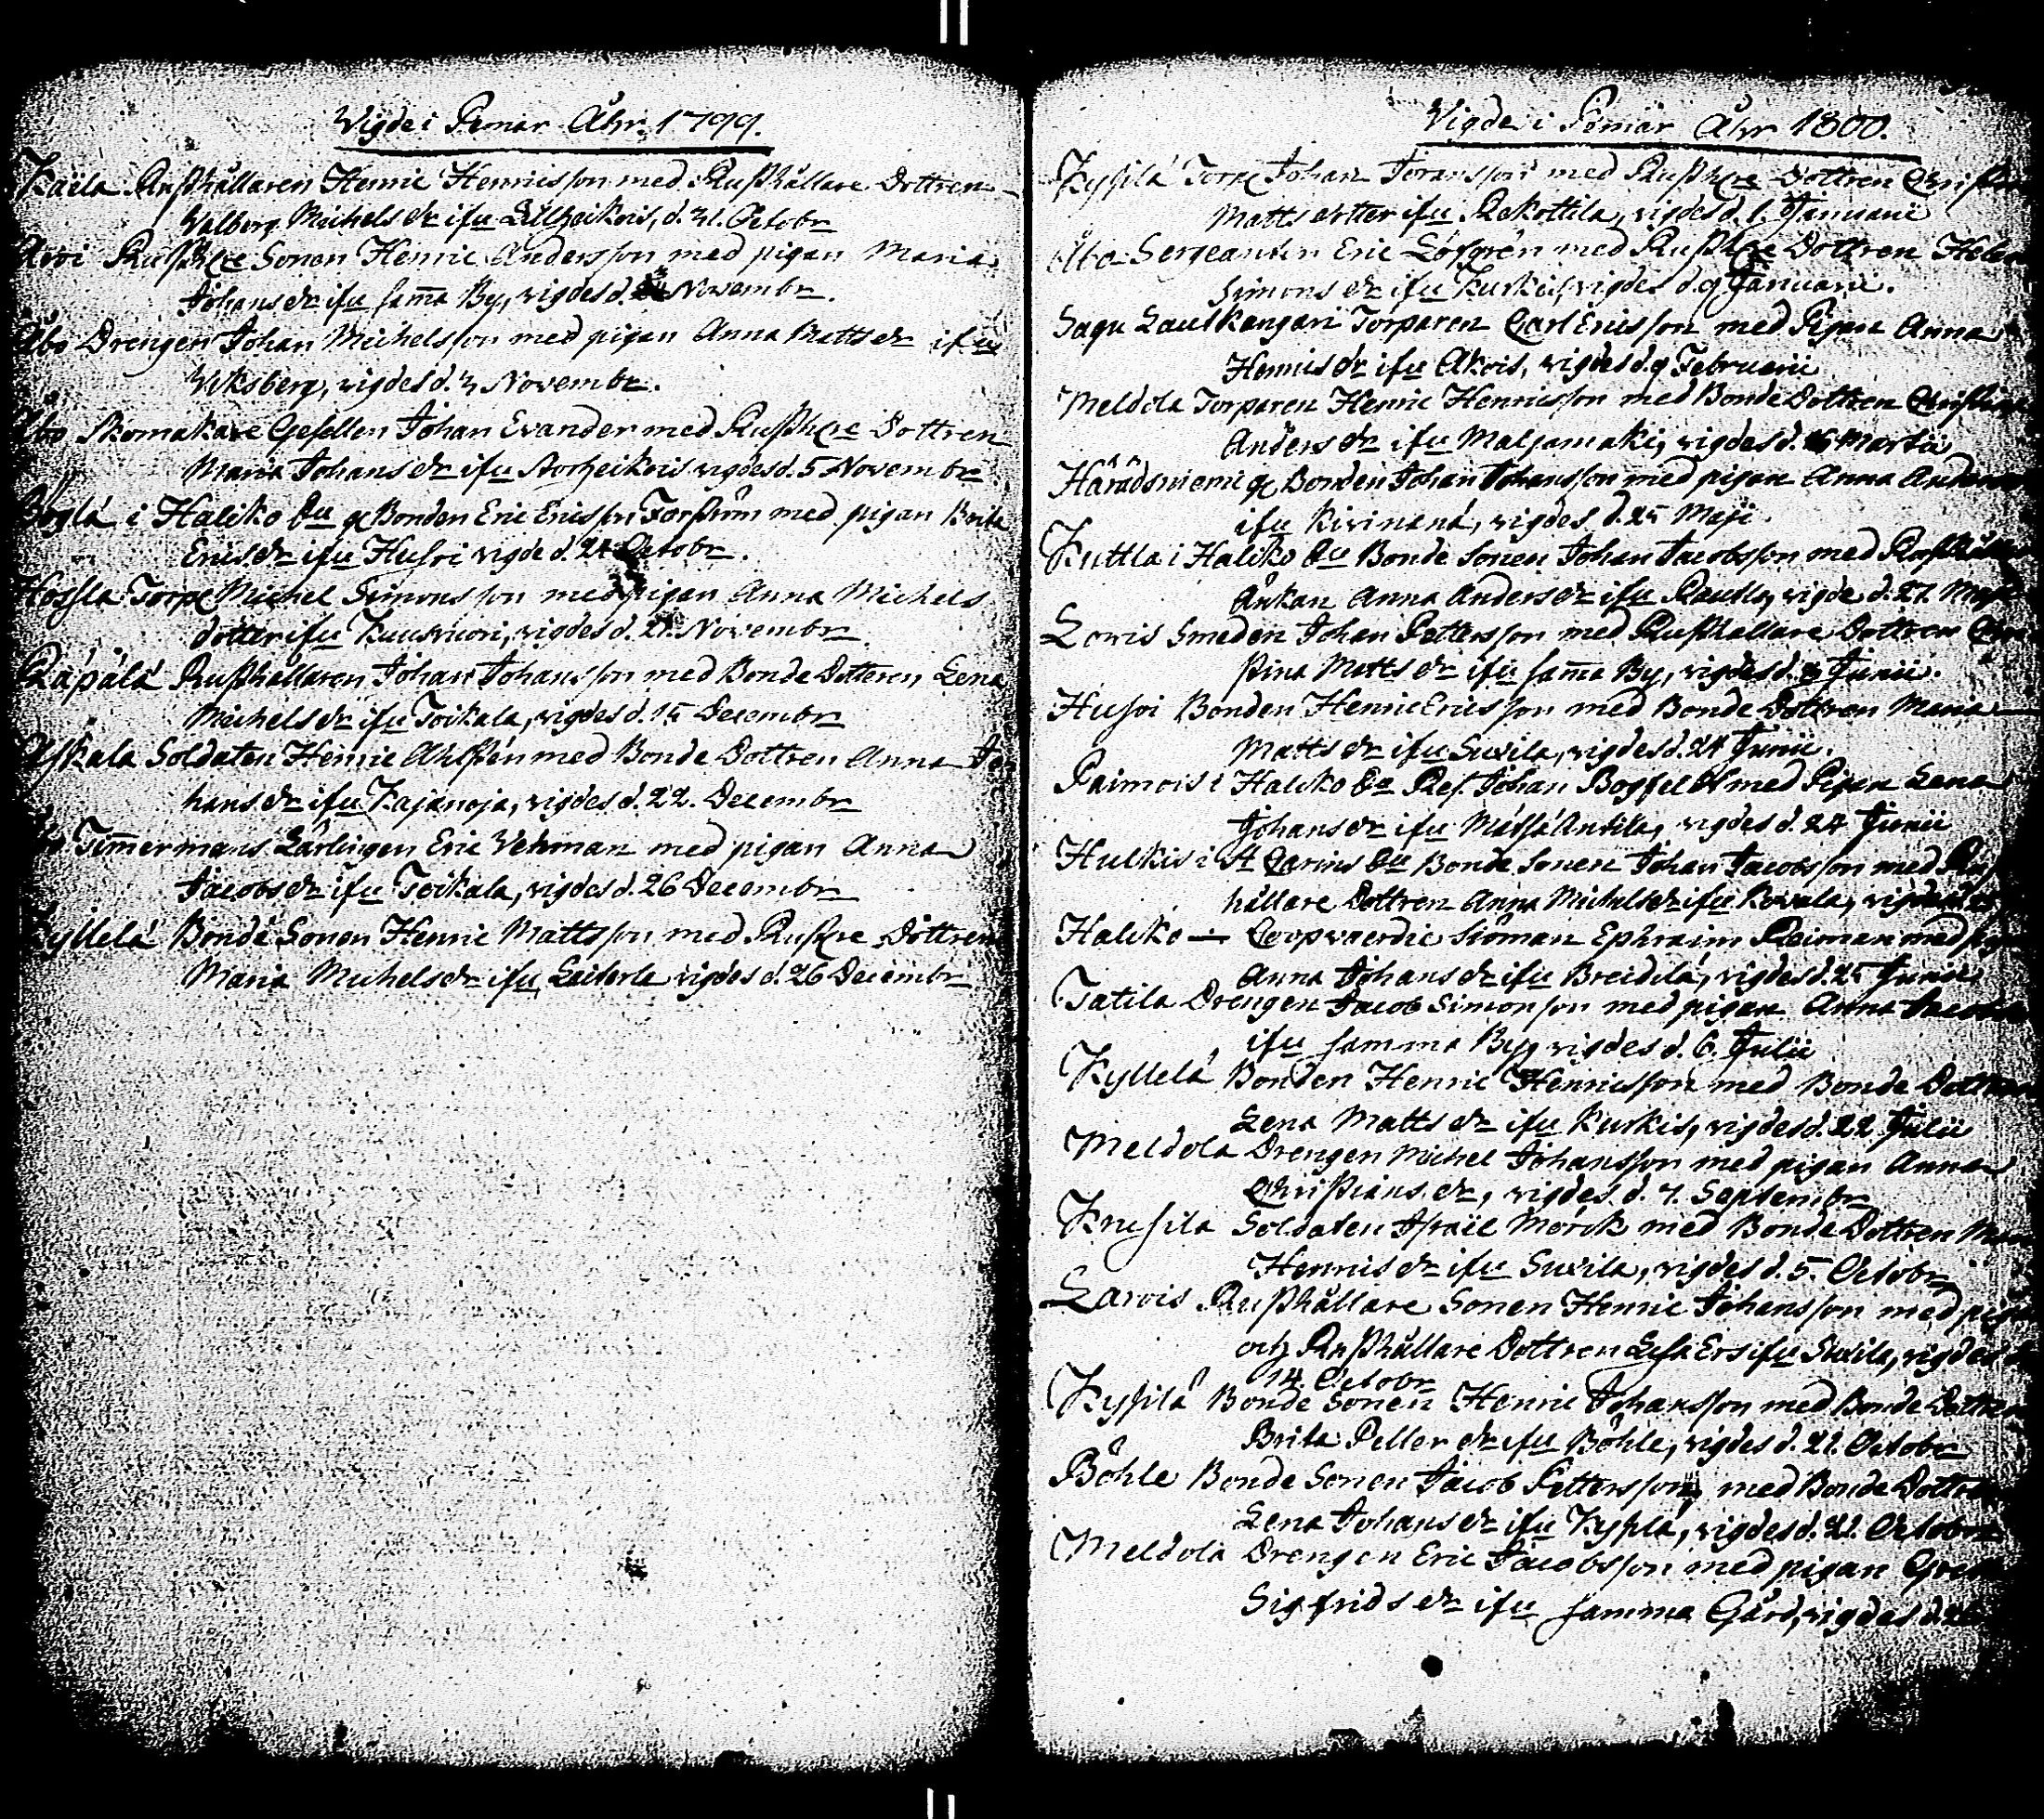 Vigde i Pemar Åhr 1799.
Kaila Rusthållaren Henric Henricsson med Rusthållare Dottren
Walborg Michels dr ifrn Lillheikois, d. 31. Octobr
Arvi Rusthre Sonen Henric Andersson med pigan Maria
Johans dr ifrn samma By, vigdes d. Novembr.
Åbo Drengen Johan Michelsson med pigan Anna Matts dr ifrn
Wiksberg, vigdes d. 3 Novembr.
Åbo Skomakare Gesellen Johan Evander med Rusthre Dottren
Maria Johans dr ifrn Storheikois vigdes d. 5 Novembr
i Haliko Sn gl Bonden Eric Ericsson Torström med pigan Brita
Erics dr ifrn Husoi vigde d. 24 Octobr.
Hossla Torp Michel Simonsson med pigan Anna Michels
dotter ifrn Kuusvuori, vigdes d. 21. Novembr
Räpälä Rusthållaren Johan Johansson med Bonde Dottren Lena
Michels dr ifrn Toikala, vigdes d. 15 Decembr
Askala Soldaten Henric Ahlsten med Bonde Dottren Anna Jo
hans dr ifrn Kajanoja, vigdes d. 22. Decembr
Timmermans Lärlingen Eric Vehman med pigan Anna
Jacobs dr ifrn Toikala, vigdes d. 26 Decembr
Kyllelä Bonde Sonen Henric Mattsson med Rusthre Dottren
Maria Michels dr ifrn vigdes d. 26 Decembr
Vigde i Pemar Åhr 1800.
Kyssilä Torp Johan Joransson med Rusthre Dottren Christi
Matts dotter ifrn Rekottila, vigdes d. 1. Januarii
Åbo Sergeanten Eric Löfgren med Rusthre Dottren Helen
Simons dr ifrn Kurkis, vigdes d. 9 Januarii.
Sagu Lautkangari Torparen Carl Ericsson med Pigan Anna
Henrics dr ifrn Akois, vigdes d. 9 Februarii
Meldola Torparen Henric Henricsson med Bonde Dottren Christin
Anders dr ifrn Maljamäki, vigdes d. 16 Martii
Häradsniemi gl Bonden Johan Johansson med pigan Anna Anders
ifrn Kivinenä, vigdes d. 25 Maji.
Kuttla i Haliko Sn Bonde Sonen Johan Jacobsson med Rusthåll
Änkan Anna Anders dr ifrn Rautla, vigde d. 27. Maji
Lowis Smeden Johan Pettersson med Rusthållare Dottren Chri
stina Matts dr ifrn samma By, vigdes d. Junii.
Husoi Bonden Henric Ericsson med Bonde Dottren Maria
Matts dr ifrn Suvila, vigdes d. 24 Junii.
Raimois i Haliko Sn Res. Johan Bogfelt med Pigan Lena
Johans dr ifrn Mässä Antila, vigdes d. 24 Junii
Hulkis i St Carins Sn Bonde Sonen Johan Jacobsson med Rust
hållare Dottren Anna Michels dr ifrn Kovala, vigdes d.
Haliko — Coopvaerdie Sjöman Ephraim Reiman med pigan
Anna Johans dr ifrn Breidilä, vigdes d. 25 Junii
Tatila Drengen Jacob Simonsson med pigan Anna Jacobs
ifrn samma By, vigdes d. 6. Julii
Kyllelä Bonden Henric Henricsson med Bonde Dottren
Lena Matts dr ifrn Kurkis, vigdes d. 22. Julii
Meldola Drengen Michel Johansson med pigan Anna
Christians dr, vigdes d. 7. Septembr
Krusila Soldaten Israël Mörck med Bonde Dottren Maria
Henrics dr ifrn Suvila, vigdes d. 5. Octobr
Larvis Rusthållare Sonen Henric Johansson med pigan
och Rusthållare Dottren Lisa Ers ifrn Suvila, vigdes d.
14. Octobr
Kyssilä Bonde Sonen Henric Johansson med Bonde Dottren
Brita Petter dr ifrn Böhle, vigdes d. 21. Octobr
Böhle Bonde Sonen Jacob Pettersson, med Bonde Dottren
Lena Johans dr ifrn Kyssilä, vigdes d. 21. Octobr
Meldola Drengen Eric Jacobsson med pigan Greta
Sigfrids dr ifrn samma Gård, vigdes d.